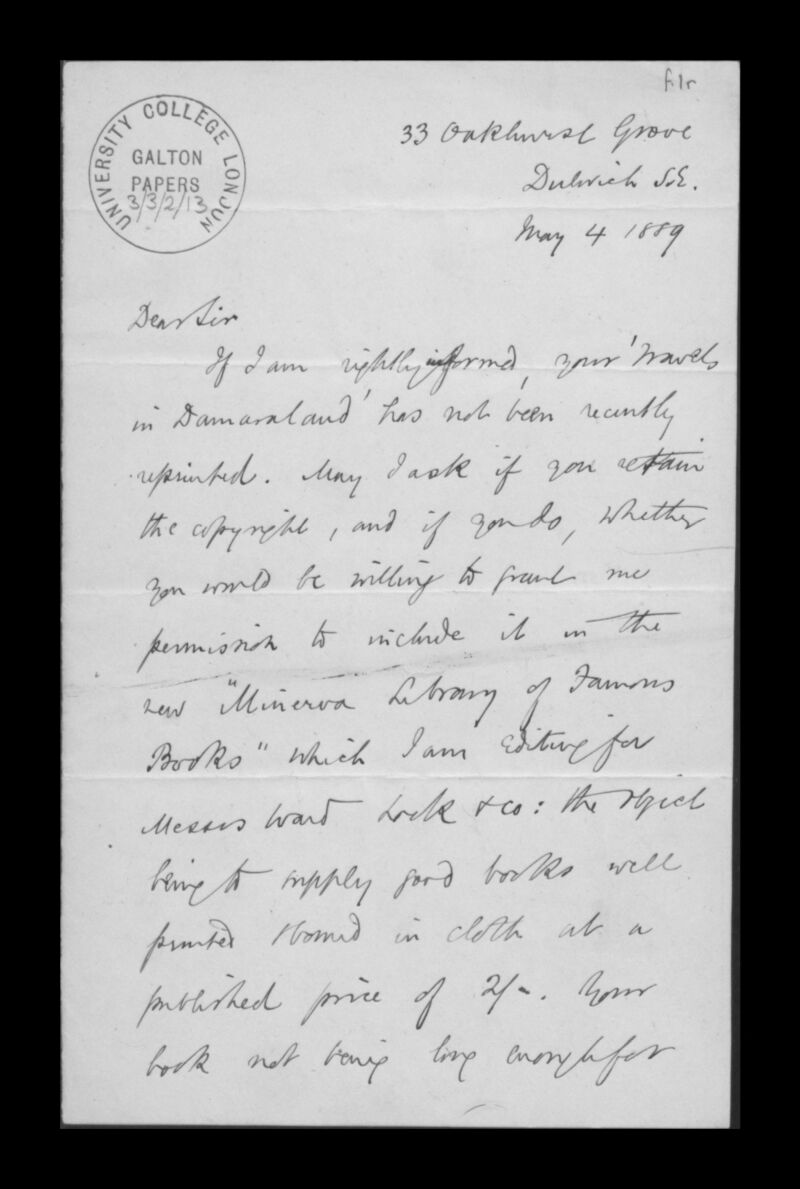 f.1r
UNIVERSITY COLLEGE LONDON
GALTON
PAPERS
3/3/2/13
33 Oakhurst Grove
Dulwich S.E.
May 4 1889
Dear Sir
If I am rightly informed, your 'Travels
in Damaraland' has not been recently
reprinted. May I ask if you retain
the copyright, and if you do, whether
you would be willing to grant me
permission to include it in the
new "Minerva Library of Famous
Books" which I am editing for
Messrs Ward Lock & Co: the object
being to supply good books well
printed & bound in cloth at a
published price of 2/-. Your
book not being long enough for